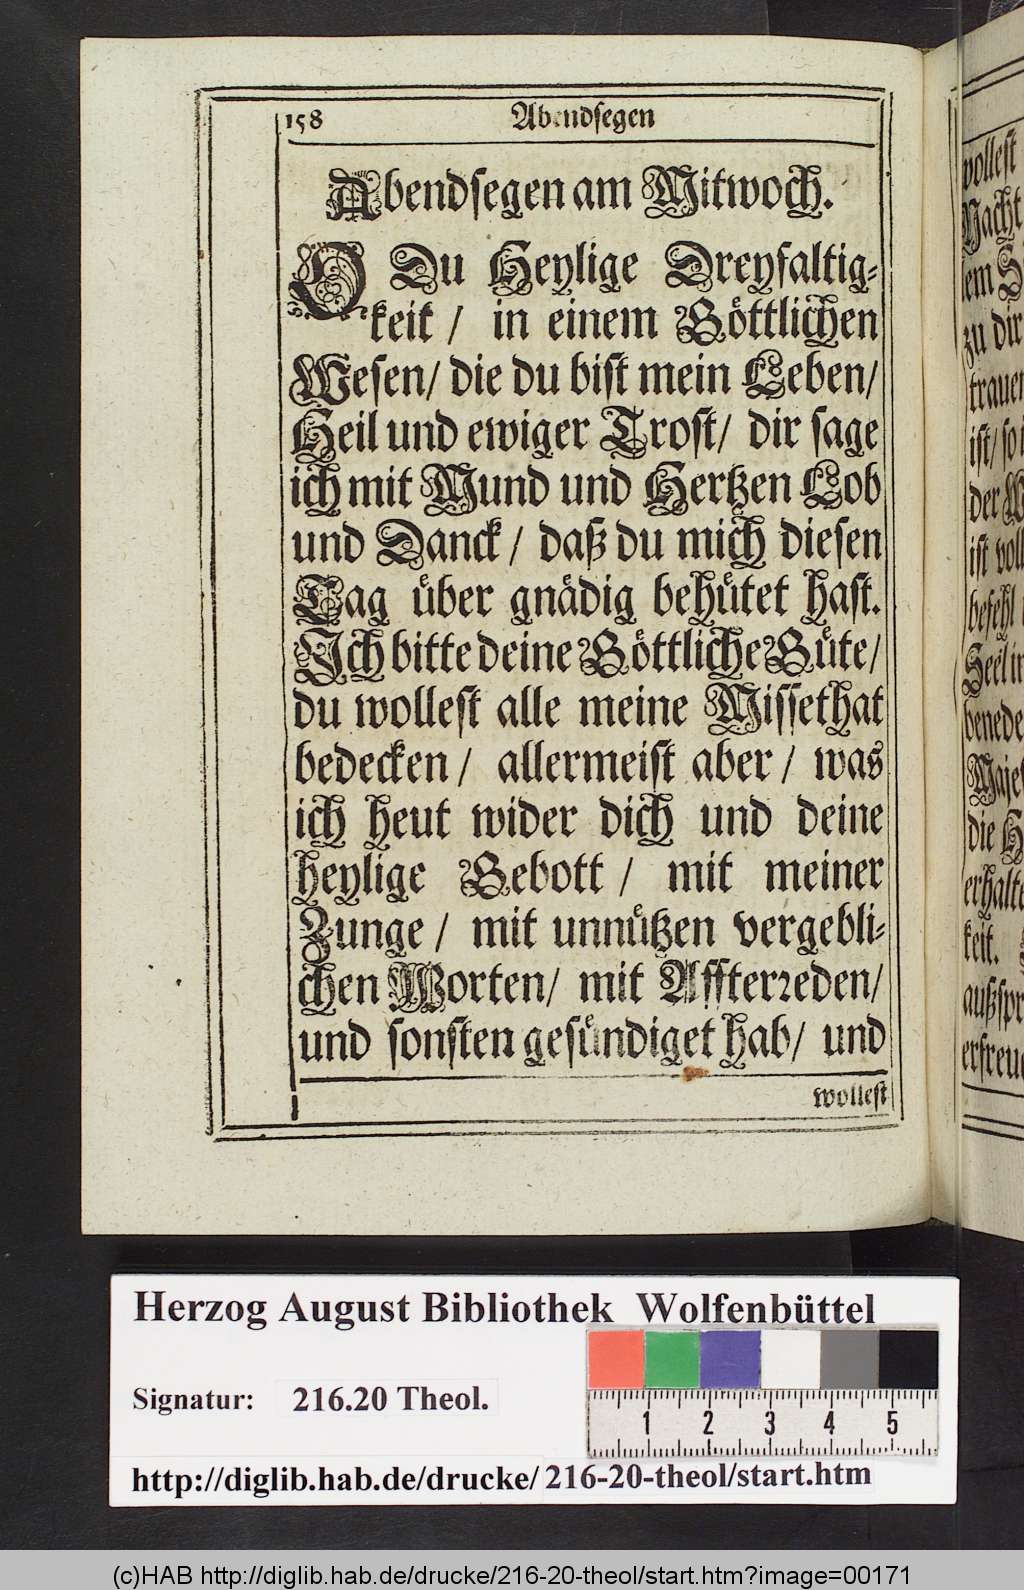 158 Abendsegen
Abendsegen am Mitwoch.
O Du Heylige Dreyfaltig-
keit / in einem Göttlichen
Wesen / die du bist mein Leben /
Heil und ewiger Trost / dir sage
ich mit Mund und Hertzen Lob
und Danck / daß du mich diesen
Tag über gnädig behütet hast.
Ich bitte deine Göttliche Güte /
du wollest alle meine Missethat
bedecken / allermeist aber / was
ich heut wider dich und deine
heylige Gebott / mit meiner
Zunge / mit unnützen vergebli-
chen Worten / mit Affterreden /
und sonsten gesündiget hab / und
wollest
wollest
Nacht
zu dir
trauen
ist / so
der
ist
befehl
Seel
die
keit.
Herzog August Bibliothek Wolfenbüttel
Signatur: 216.20 Theol.
1 2 3 4 5
http://diglib.hab.de/drucke/ 216-20-theol/start.htm
(c)HAB http://diglib.hab.de/drucke/216-20-theol/start.htm?image=00171